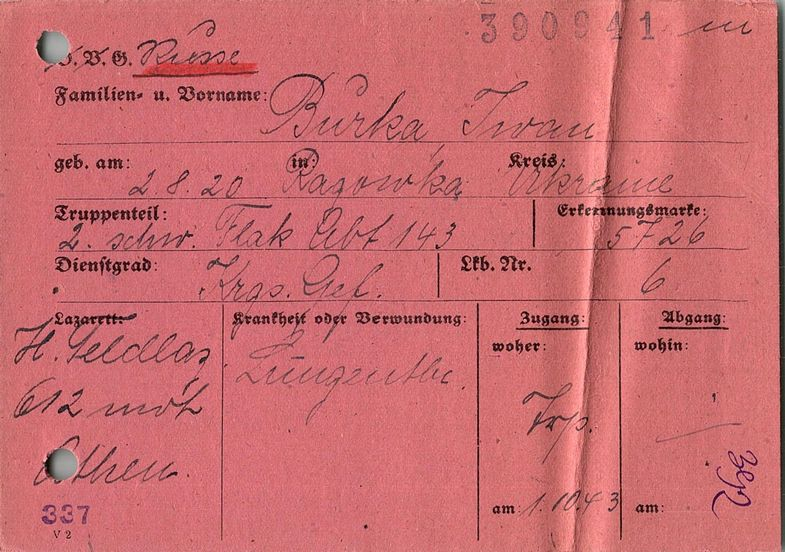 390941 m
V. V. G. Russe
Familien- u. Vorname: Burka, Iwan
geb. am: 2.8.20 in: Ragowka Kreis: Ukraine
Truppenteil: 2. schw. Flak Abt 143 Erkennungsmarke: 5726
Dienstgrad: Krgs. Gef. Lkb. Nr. 6
Lazarett: H. Feldlaz. 612 mot Athen.
Krankheit oder Verwundung: Lungentbc.
Zugang: woher: Trp. am 1.10.43
Abgang: wohin: am:
337
V 2